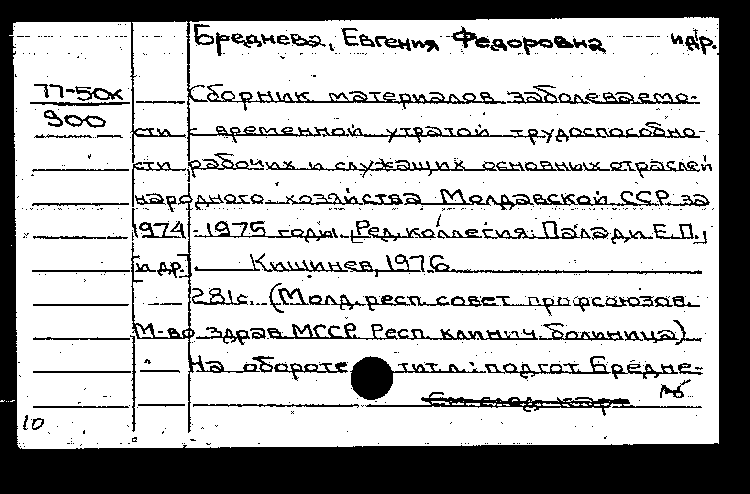 Бреднева, Евгения Федоровна и др.
77-50к Сборник материалов заболеваемо-
900 сти с временной утратой трудоспособно-
сти рабочих и служащих основных отраслей
народного хозяйства Молдавской ССР за
1974-1975 годы. [Ред. коллегия: Палади Е.П.,
[и др.]. Кишинев, 1976
281с. (Молд. респ. совет профсоюзов.
М-во здрав. МССР. Респ. клинич. болиница)
На обороте тит. л.: подгот. Бредне-
См. след. карт
10